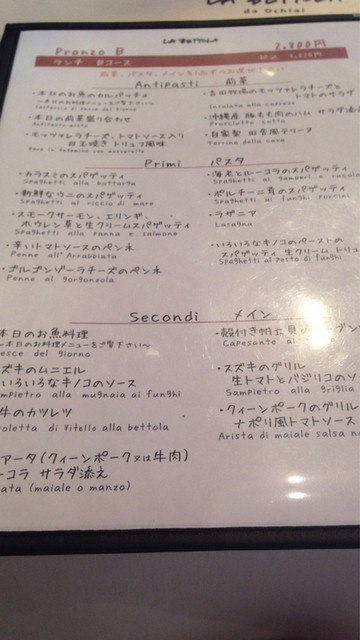 LA BETTOLA
da Ochiai
LA BETTOLA
Pranzo B 2,800円
ランチ Bコース 税込
Antipasti 前菜
・本日のお魚のカルパッチョ
～本日のお魚料理メニューをご覧下さい～
・本日の前菜盛り合わせ
Antipasto misto
・モッツァレラチーズ、トマトソース入り
目玉焼き トリュフ風味
・吉田牧場のモッツァレラチーズと
トマトのサラダ
Insalata alla caprese
・沖縄産豚もも肉のハム サラダ添え
Prosciutto cotto
・自家製 田舎風テリーヌ
Terrina della casa
Primi パスタ
・カラスミのスパゲッティ
Spaghetti alla bottarga
・新鮮なウニのスパゲッティ
Spaghetti al riccio di mare
・スモークサーモン、エリンギ、
ホウレン草と生クリームスパゲッティ
Spaghetti alla panna e salmone
・辛いトマトソースのペンネ
Penne all'Arrabbiata
・ゴルゴンゾーラチーズのペンネ
Penne al gorgonzola
・海老とルーコラのスパゲッティ
Spaghetti ai gamberi e rucola
・ポルチーニ茸のスパゲッティ
Spaghetti ai funghi Porcini
・ラザニア
Lasagna
・いろいろなキノコのペーストの
スパゲッティ 生クリーム トリュ
Spaghetti al pesto di funghi
Secondi メイン
本日のお魚料理
～本日のお魚料理メニューをご覧下さい～
esce del giorno
スズキのムニエル
いろいろなキノコのソース
ampietro alla mugnaia ai funghi
牛のカツレツ
oletta di Vitello alla bettola
アータ(クィーンポーク又は牛肉)
ーコラ サラダ添え
ata (maiale o manzo)
・殻付き帆立貝の
Capesante al
・スズキのグリル
生トマトとバジリコのソ
Sampietro alla griglia
・クィーンポークのグリル
ナポリ風トマトソース
Arista di maiale salsa n